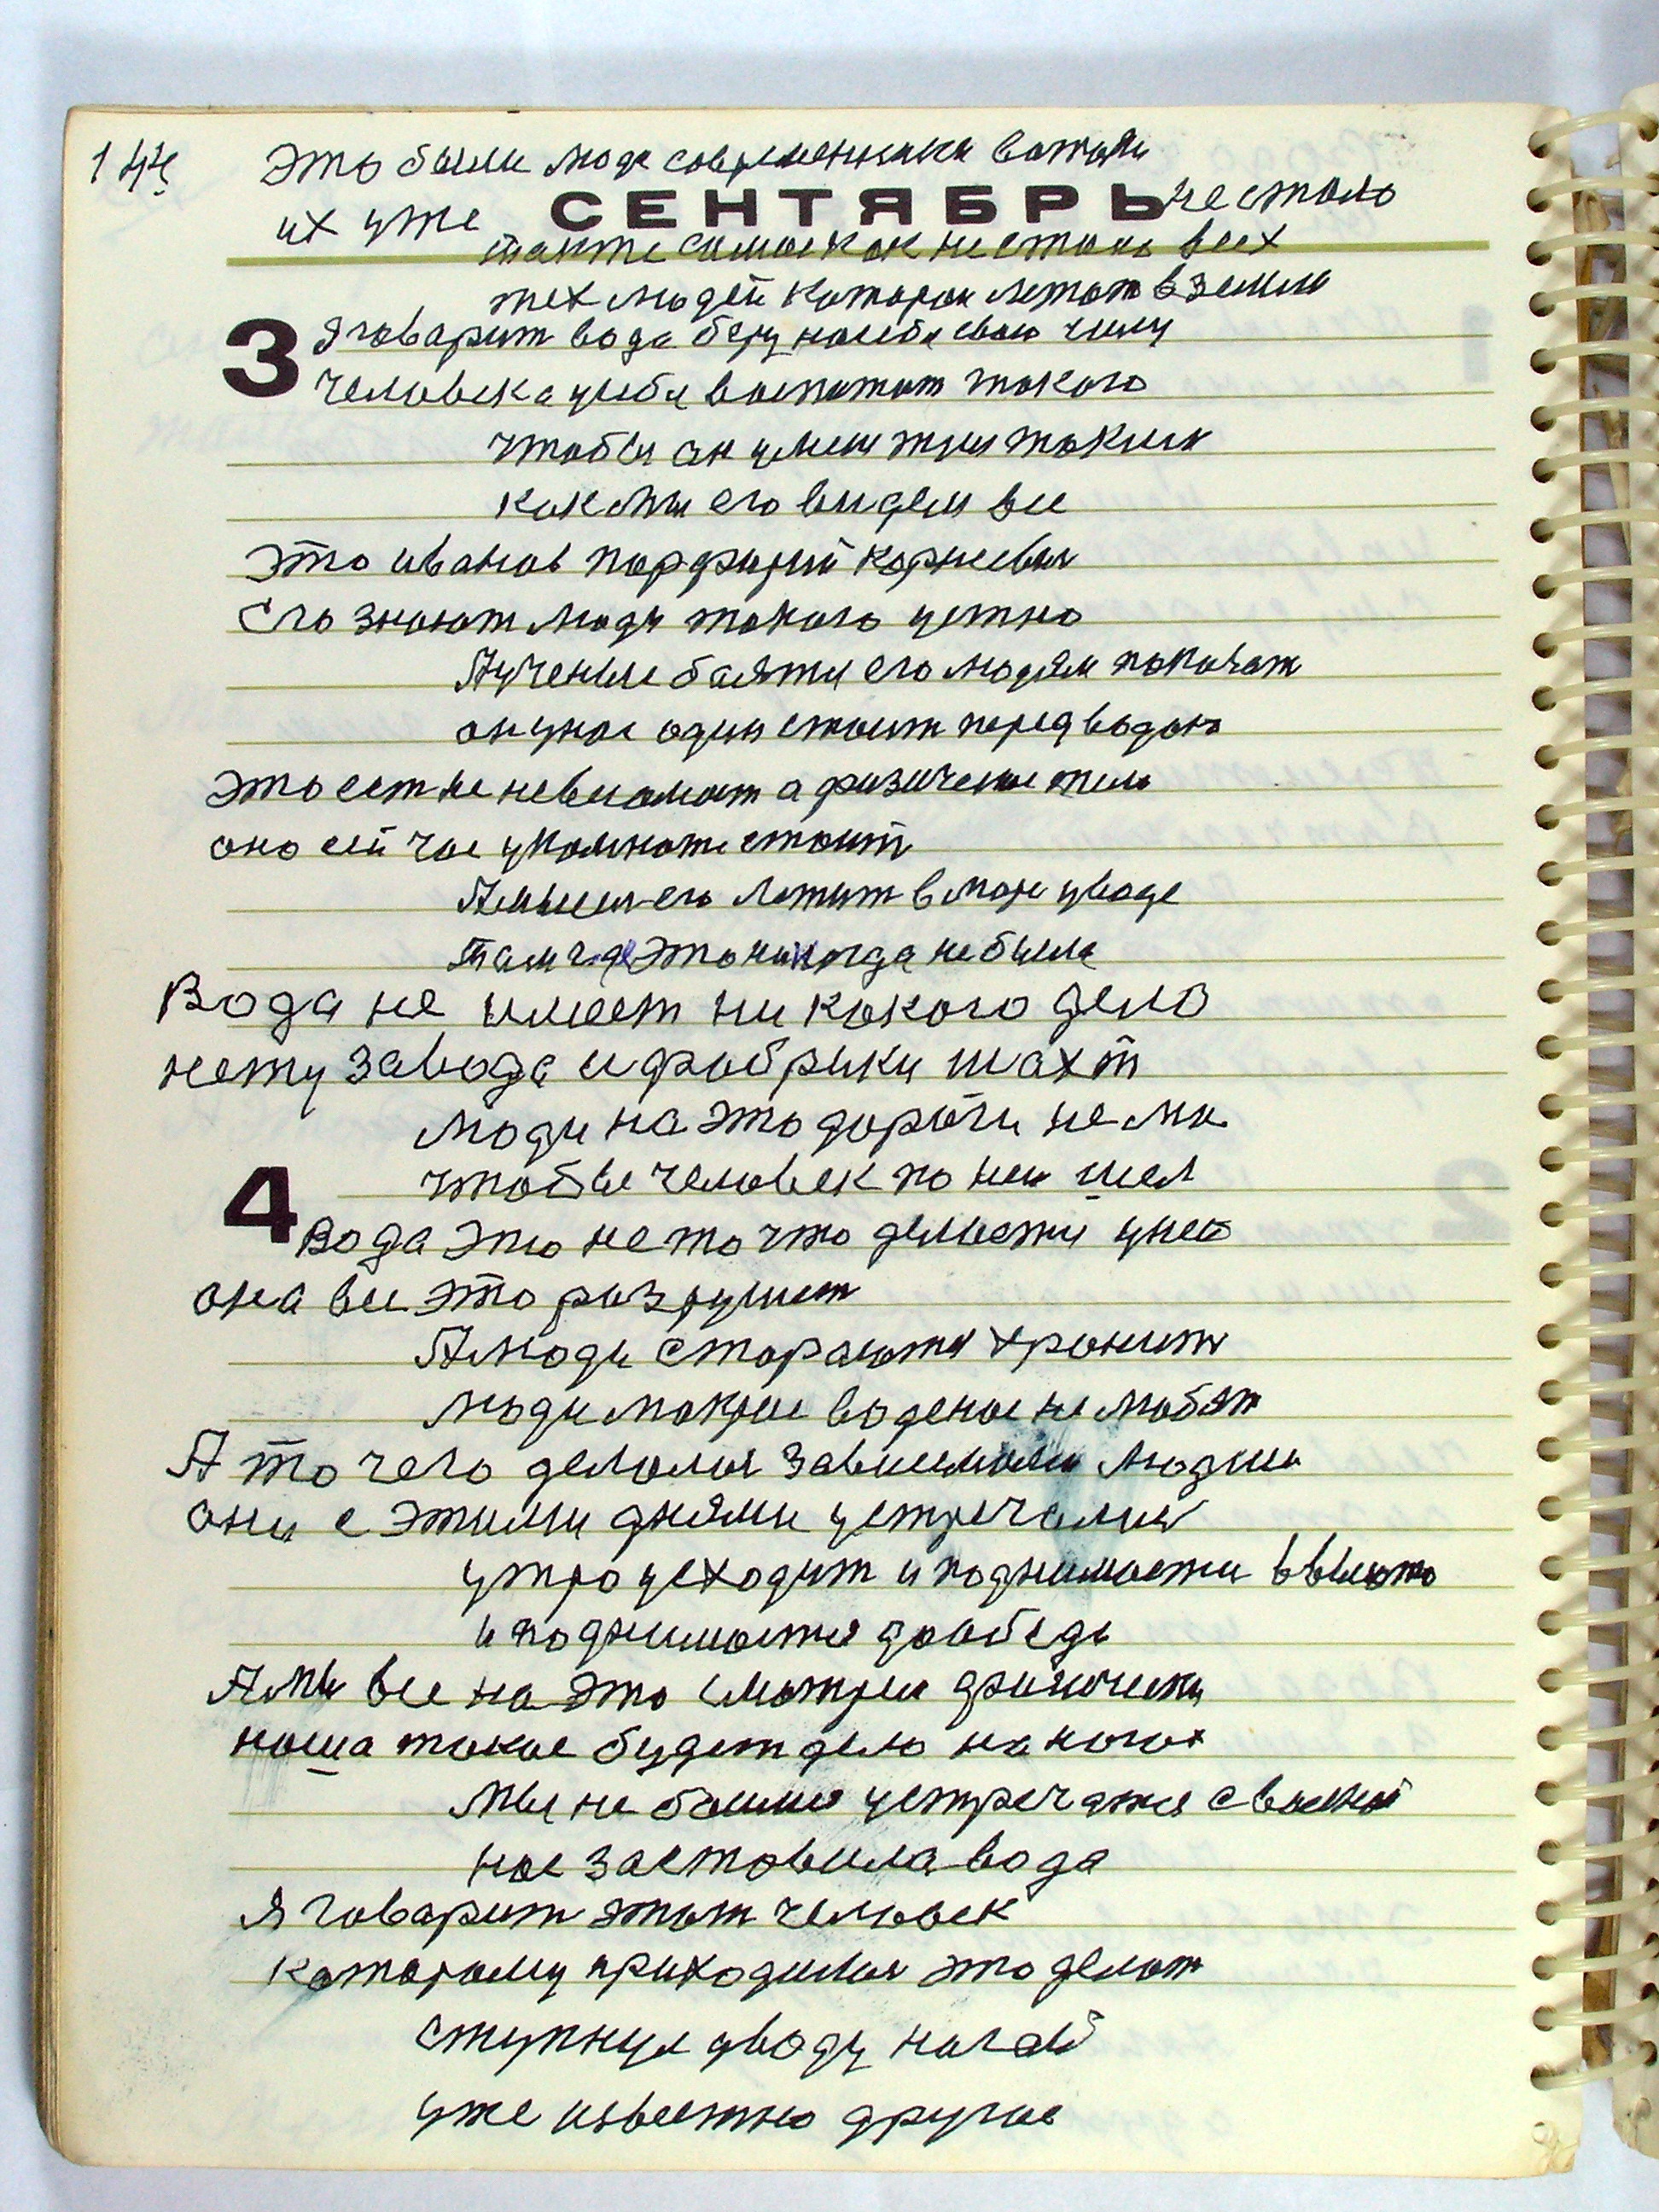 144 Это были люде современники
СЕНТЯБРЬ
их уже нестало
такте самое как нестало всех
тех людей которои летат в земли
3
Я говарит вода беру насебя свою силу
человека усебя воспитат такого
чтобы он умеи таким
как мы его видели все
Это иванов порфирий корнеевич
Его знают люди такого устно
Аучение его людям
он унас один стоит перед водою
Это ест не а физическое тело
оно сей час стоит
его летит в море уводе
там где это никогда небыла
Вода не имеет ни какого дело
нету завода и фабрики шахт
люди на это дороги
4
чтобы человек по ней шел
Вода это не то что делается унас
она все это разрушает
Алюди стараются хронить
люди мокрое воденое не любят
А то чего делалося людми
они с этими днями устречалися
утро усходит и поднимается
и поднимается дообеда
Амы все на это смотрим физически
наша такое будет дело на ногах
мы не устречатся с
нас заставила вода
Я говарит этот человек
которому приходилося это делат
ступнул уводу ногой
уже известно другое